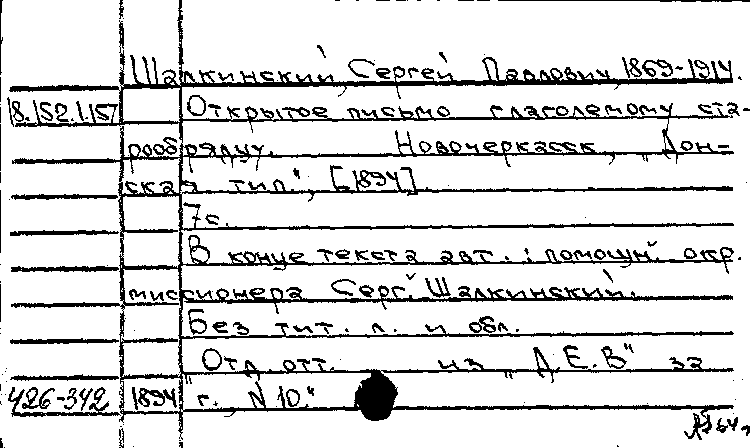 Шалкинский, Сергей Павлович, 1869-1914.
18.152.1.157 Открытое письмо глаголемому ста-
рообрядцу. Новочеркасск, „Дон-
ская тип.", [1894].
7 с.
В конце текста авт.: помощн. окр.
миссионера Серг. Шалкинский.
Без тит. л. и обл.
Отд. отт. из „Д.Е.В" за
426-342 1894 г., N 10."